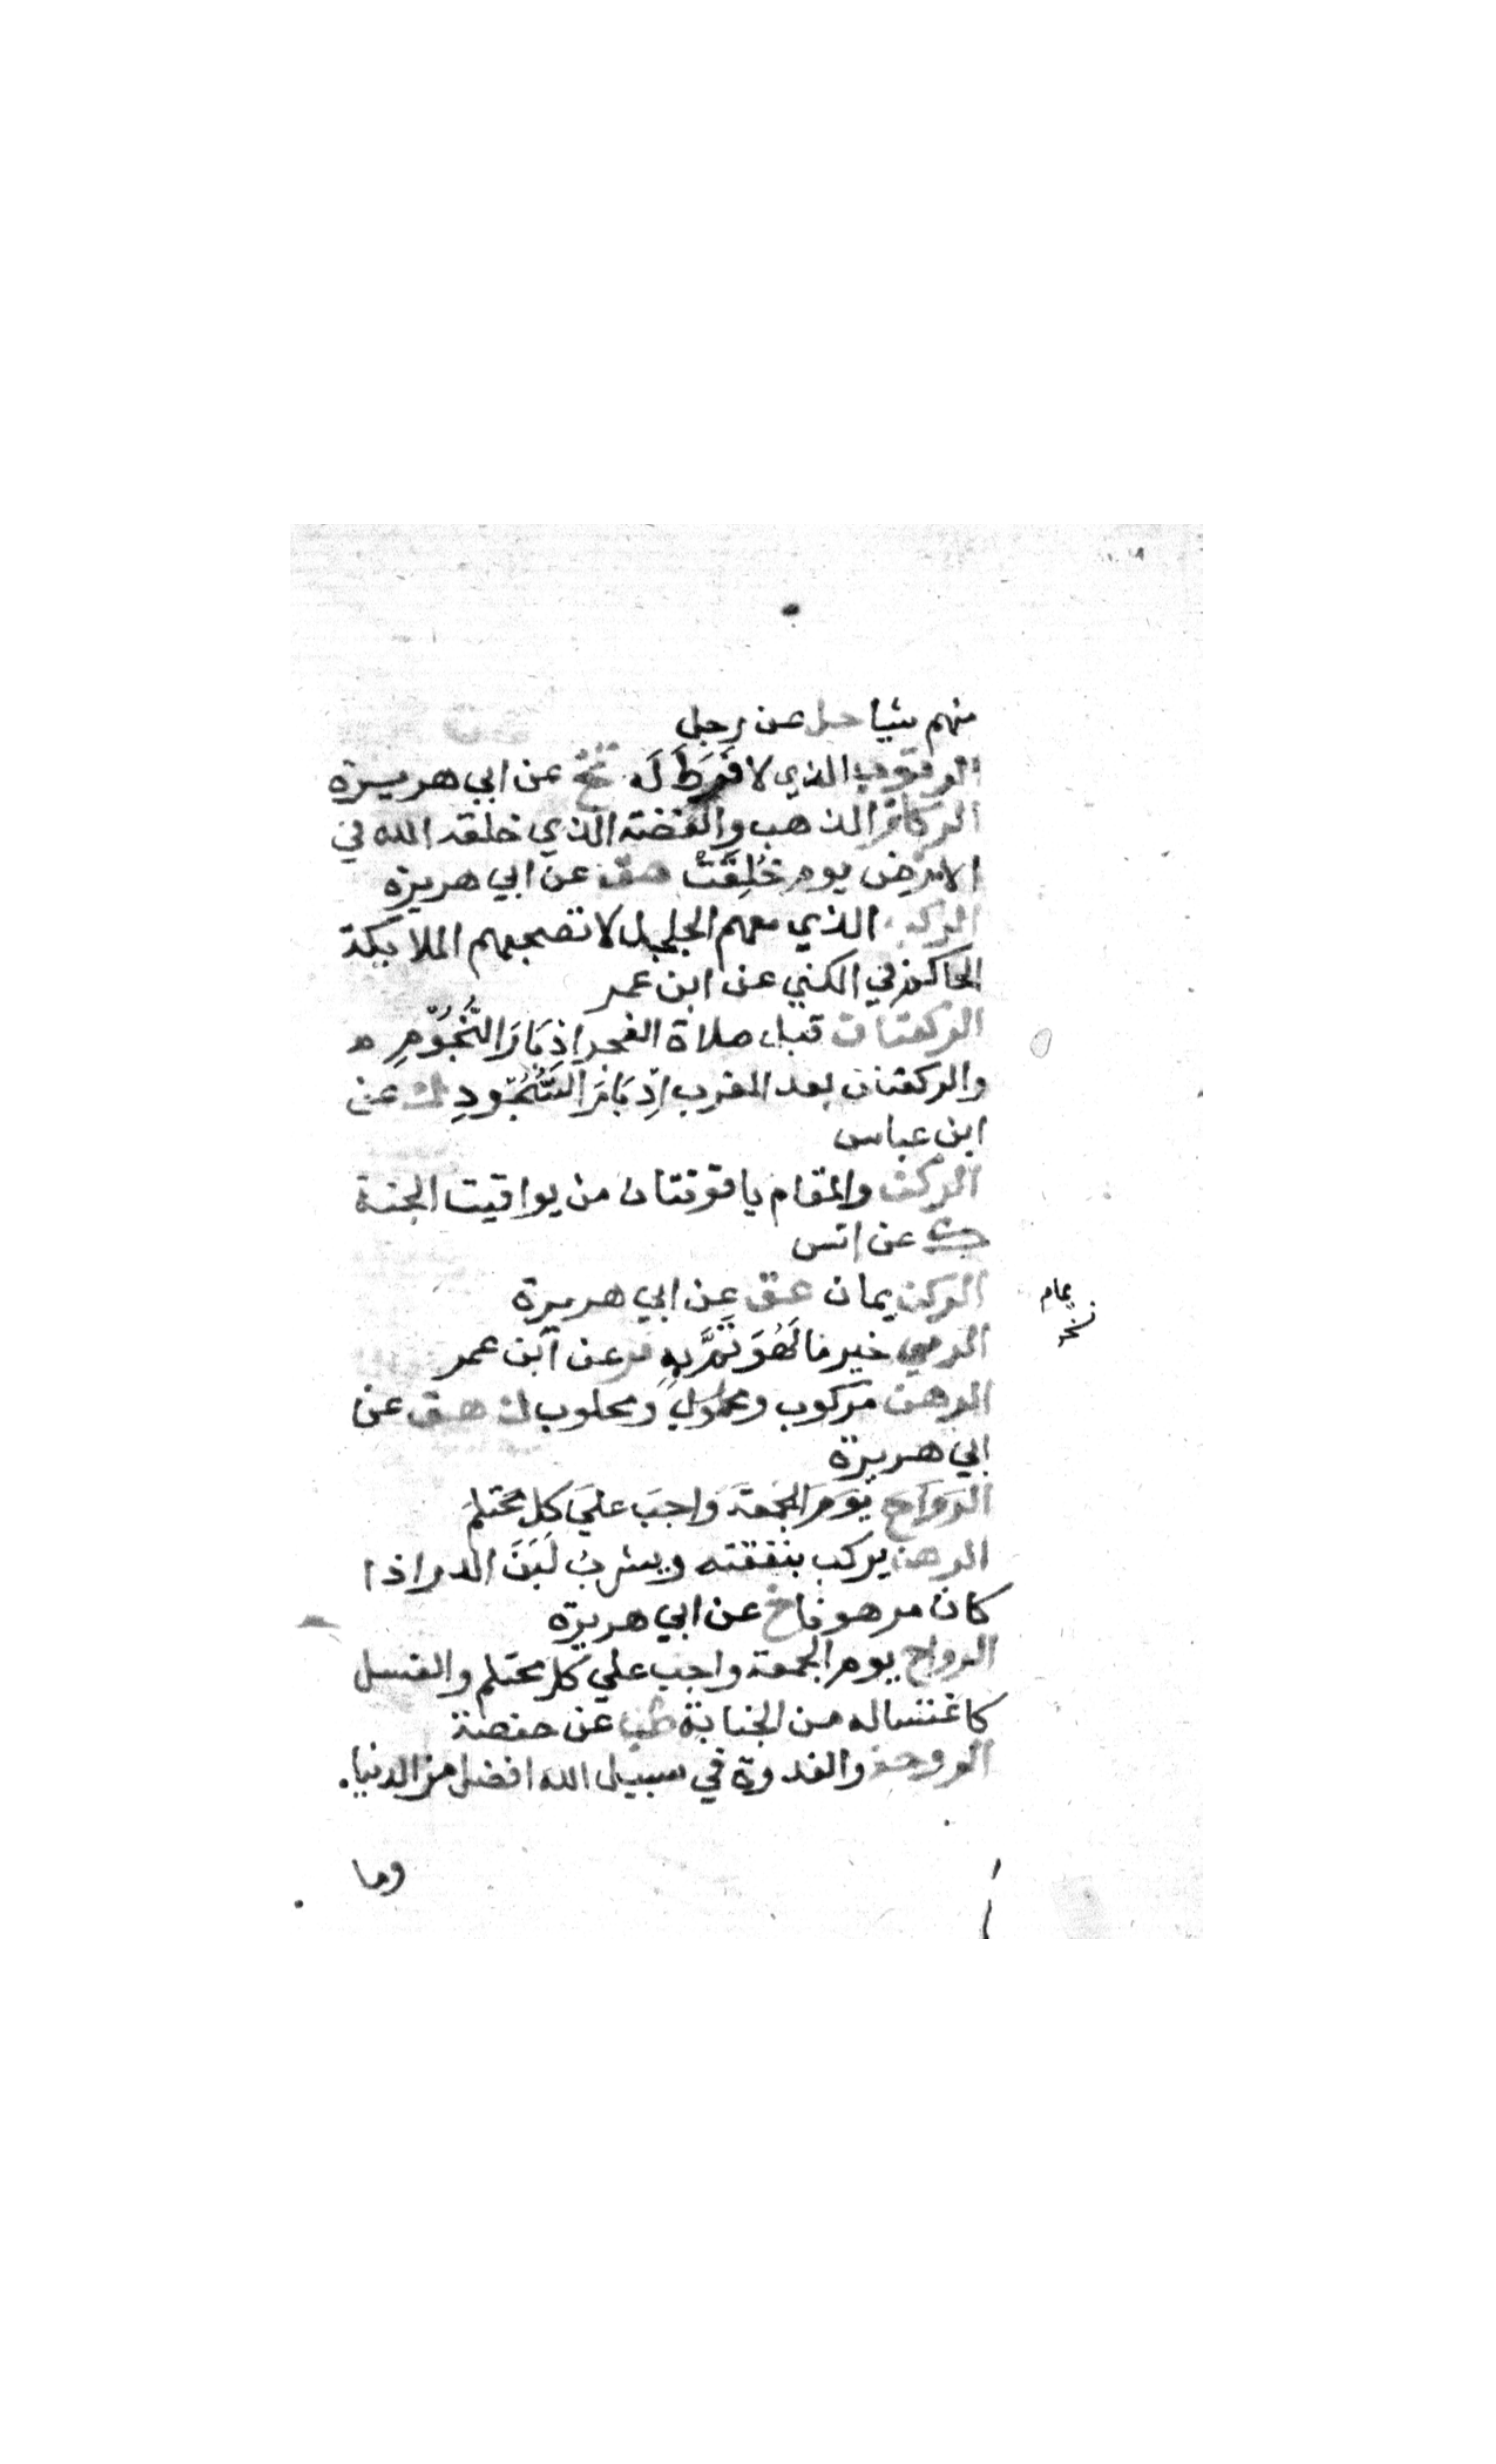 منهم شيا حل عن رجل
الرقوب الذي لا فَرَطَ لَه تخ عن ابي هريرة
الركاز الذهب والفضة الذي خلقه الله في
الارض يوم خُلِقَتْ هق عن ابي هريرة
الركب الذي معهم الجلجل لا تصحبهم الملايكة
الحاكم في الكني عن ابن عمر
الركعتان قبل صلاة الفجر اِدْبَارَ النُّجُوْمِ
والركعتان بعد المغرب اِدْبَارَ السُّجُودِ ك عن
ابن عباس
الركن والمقام ياقوتتان من يواقيت الجنة
ك عن انس
الركن يمان عق عن ابي هريرة
يمام
نسخه
الرمي خير ما لَهَوْتُمْ بِهِ فر عن ابن عمر
الرهن مركوب ومحلوب ك هق عن
ابي هريرة
الرواح يوم الجمعة واجب علي كل محتلم
الرهن يركب بنفقته ويشرب لَبَن الدر اذا
كان مرهونا خ عن ابي هريرة
الرواح يوم الجمعة واجب علي كل محتلم والغسل
كاغتساله من الجنابة طب عن حفصة
الروحة والغدوة في سبيل الله افضل من الدنيا
وما